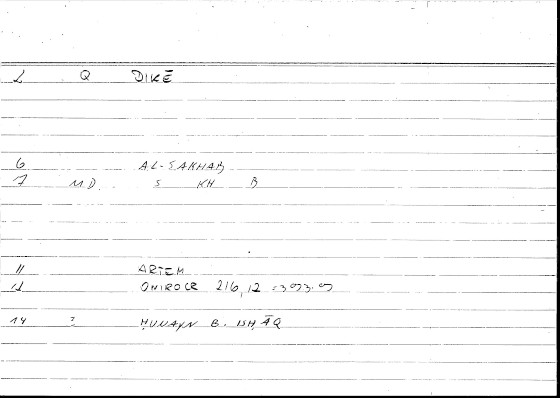 2 Q DIKĒ
6 AL-SAKHAB
7 MD. S KH B
11 ARTEM
12 ONIROCR 216,12
14 ? ḤUNAYN B. ISḤĀQ